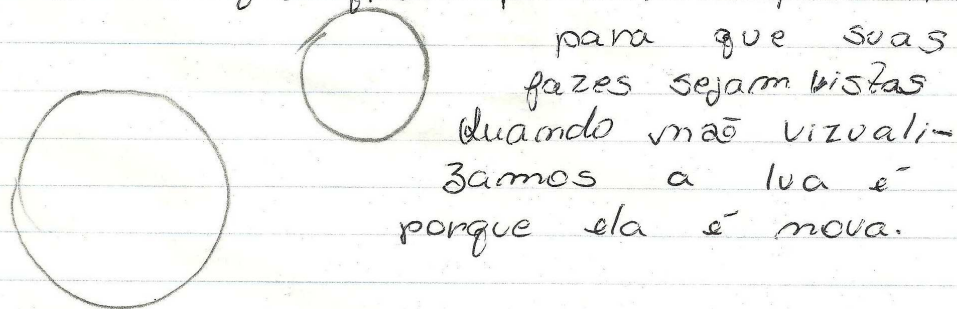 para que suas
fazes sejam vistas
Quando não vizuali-
zamos a lua é
porque ela é nova.